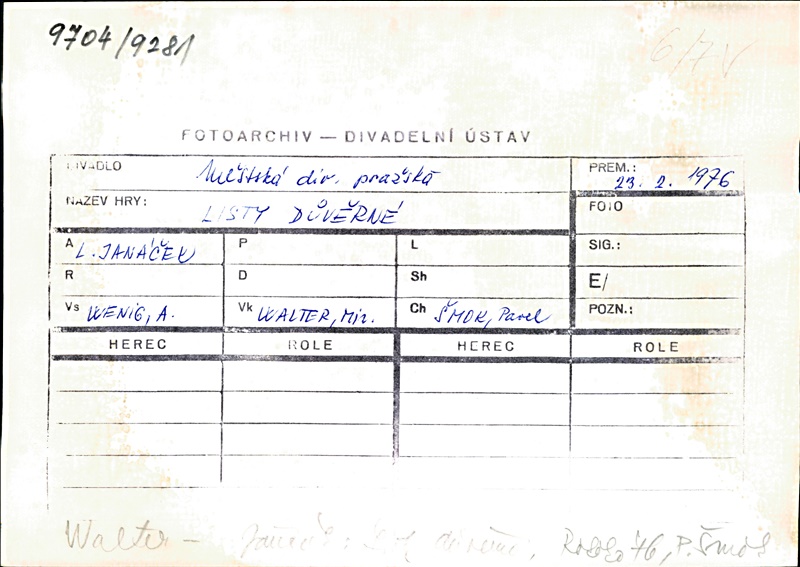 9704/9281
6/7 V
FOTOARCHIV — DIVADELNÍ ÚSTAV
DIVADLO Městská div. pražská
PREM.: 23. 2. 1976
NÁZEV HRY: LISTY DŮVĚRNÉ
FOTO
A L. JANÁČEK P L SIG.:
R D Sh E/
Vs WENIG, A. Vk WALTER, Mir. Ch ŠMOK, Pavel POZN.:
HEREC ROLE HEREC ROLE
Walter – Janáček: Listy důvěrné, 76, P. Šmok